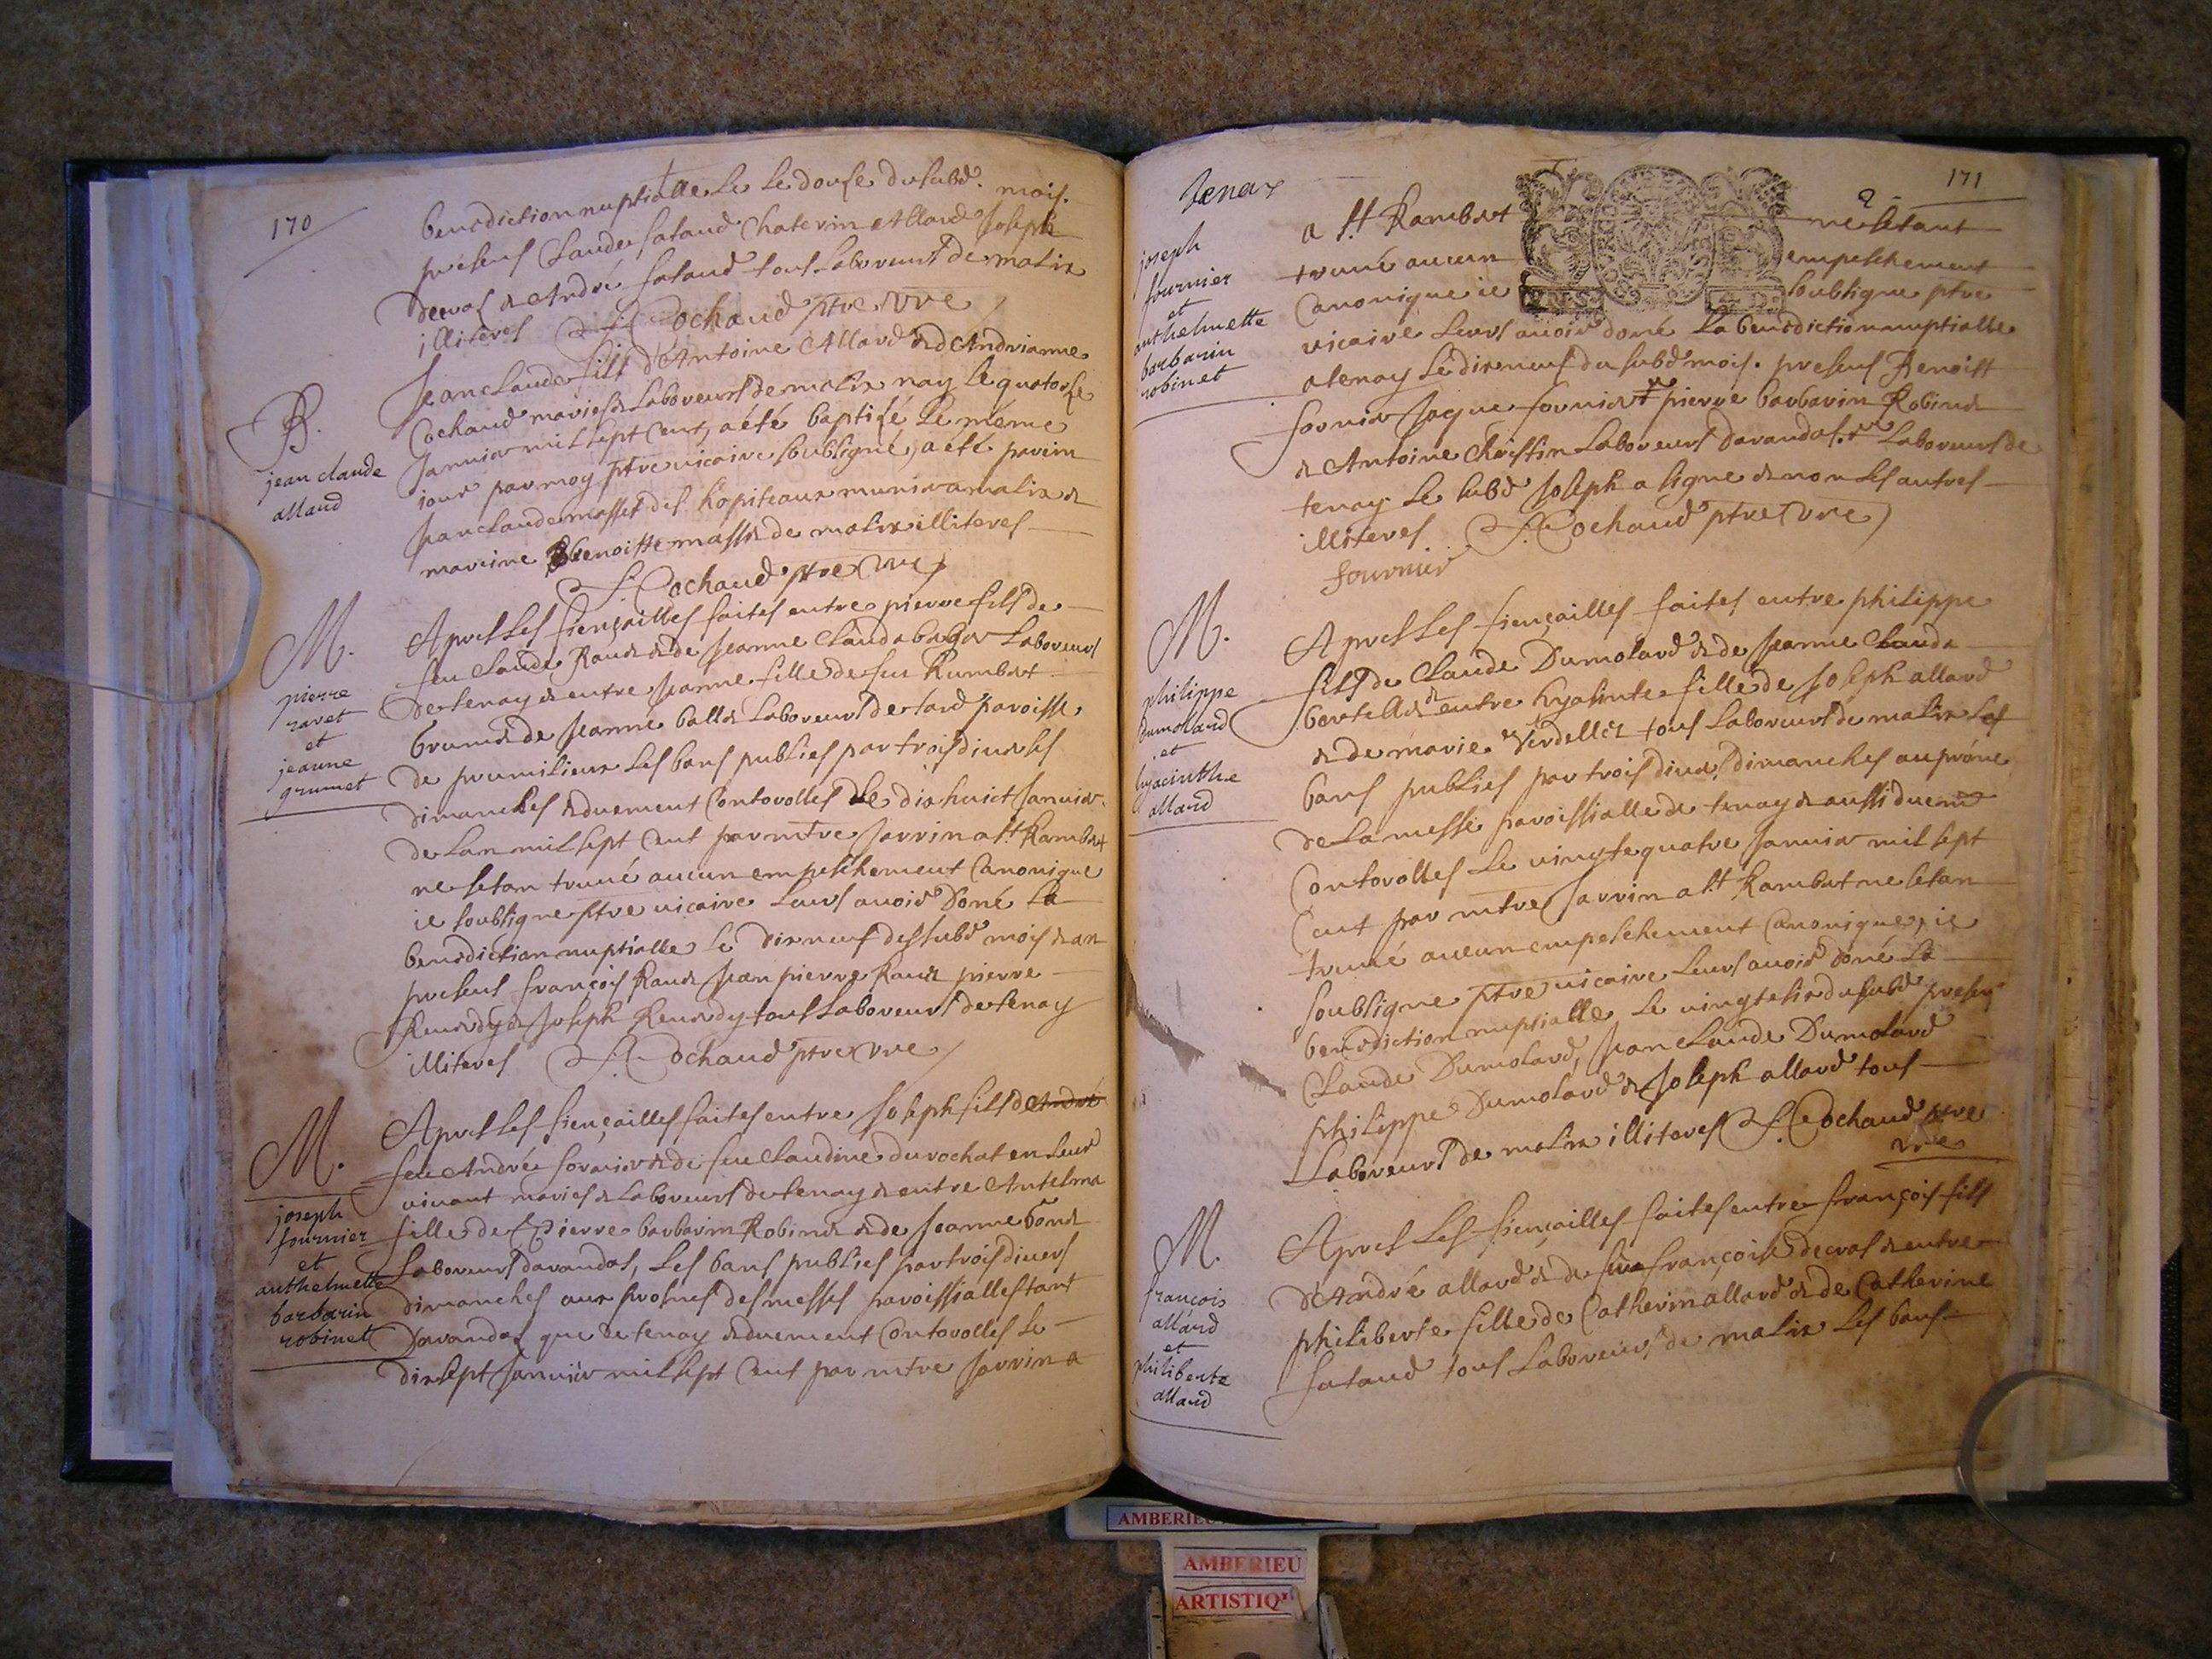 170
benediction nuptialle le douse du subd. mois.
presens Claude sataud Chaterin Allard Joseph
decros & André sataud tous Laboreurs de malix
illiteres F. Cochaud ptre vre
B.
jean claude
allaud
Jean Claude fils d'Antoine Allard & d'Andrianne
Cochaud maries & Laboreurs de malix nay le quatorse
Januier mil sept Cent, a été baptisé le méme
iour par moy ptre uicaire soubsigné, a été parein
Jean Claude masset des hopiteaux munier a malix &
mareine benoitte masset de malix illiteres
F. Cochaud ptre vre
M.
pierre
ravet
et
jeanne
grumet
Apres les fiençailles faites entre pierre fils de
feu Claude Rauet & de Jeanne Clauda Laboreurs
de tenay & entre Jeanne fille de feu Rambert
Grumet & de Jeanne ballet Laboreurs de paroisse
de premilieux Les bans publies par trois diuerses
dimanches & duement Contorolles Le dix huict Januier
de Lan mil sept Cent par mtre Jarrin a st Rambert
ne setan trouué aucun empeschement Canonique
ie soubsigne ptre uicaire Leurs auoir Doné La
benediction nuptialle le dix neuf des subd mois & an
presens françois Rauet Jean pierre Rauet pierre
Reuerdy & Joseph Reuerdy tous Laboreurs de tenay
illiteres F. Cochaud ptre vre
M.
joseph
fournier
et
anthelmette
barbarin
robinet
Apres les fiençailles faites entre Joseph fils d'André
feu André fornier & de feu Claudine durochat en leur
viuant maries & Laboreurs de tenay & entre Antelma
fille de Pierre barbarin Robinet & de Jeanne bonet
Laboreurs darandas, Les bans publies par trois diuers
dimanches aux prosnes des messes paroissialles tant
Darandas que de tenay & duement Contorolles le
dixsept Januier mil sept Cent par mtre Jarrin a
171
2
Tenay
joseph
fournier
et
anthelmette
barbarin
robinet
a st Rambert ne setant
trouué aucun empeschement
Canonique ie soubsigne ptre
uicaire Leurs auoir doné La benediction nuptialle
a tenay Le dixneuf du subd mois. presens Benoistt
fornier Jaque fornier pierre barbarin Robinet
& Antoine Christin Laboreurs darandas. Laboreurs de
tenay Le subd Joseph a signe & non Les autres
illiteres F. Cochaud ptre vre
fournier
M.
philippe
dumolard
et
hyacinthe
allard
Apres Les fiençailles faites entre philippe
fils de Claude Dumolard & de Jeanne Clauda
bertellet & entre hyasinte fille de Joseph allard
& de marie Verdellet tous Laboreurs de malix Les
bans publies par trois diuers dimanches au prône
de La messe paroissialle de tenay & aussi duemt
Contorolles Le uingte quatre Januier mil sept
Cent par mtre Jarrin a st Rambert ne setan
trouué aucun empeschement Canonique, ie
soubsigne ptre uicaire Leurs auoir doné La
benediction nuptialle Le uingte six du subd presens
Claude Dumolard, Jean Claude Dumolard
philippe Dumolard & Joseph allard tous
Laboreurs de malix illiteres F. Cochaud ptre
vre
M.
françois
allard
et
philiberte
allard
Apres Les fiençailles faites entre françois fils
d'André allard & de feue françoise decros & entre
philiberte fille de Catherin allard & de Catherine
sataud tous Laboreurs de malix Les bans
AMBERIEU
AMBERIEU
ARTISTIQ